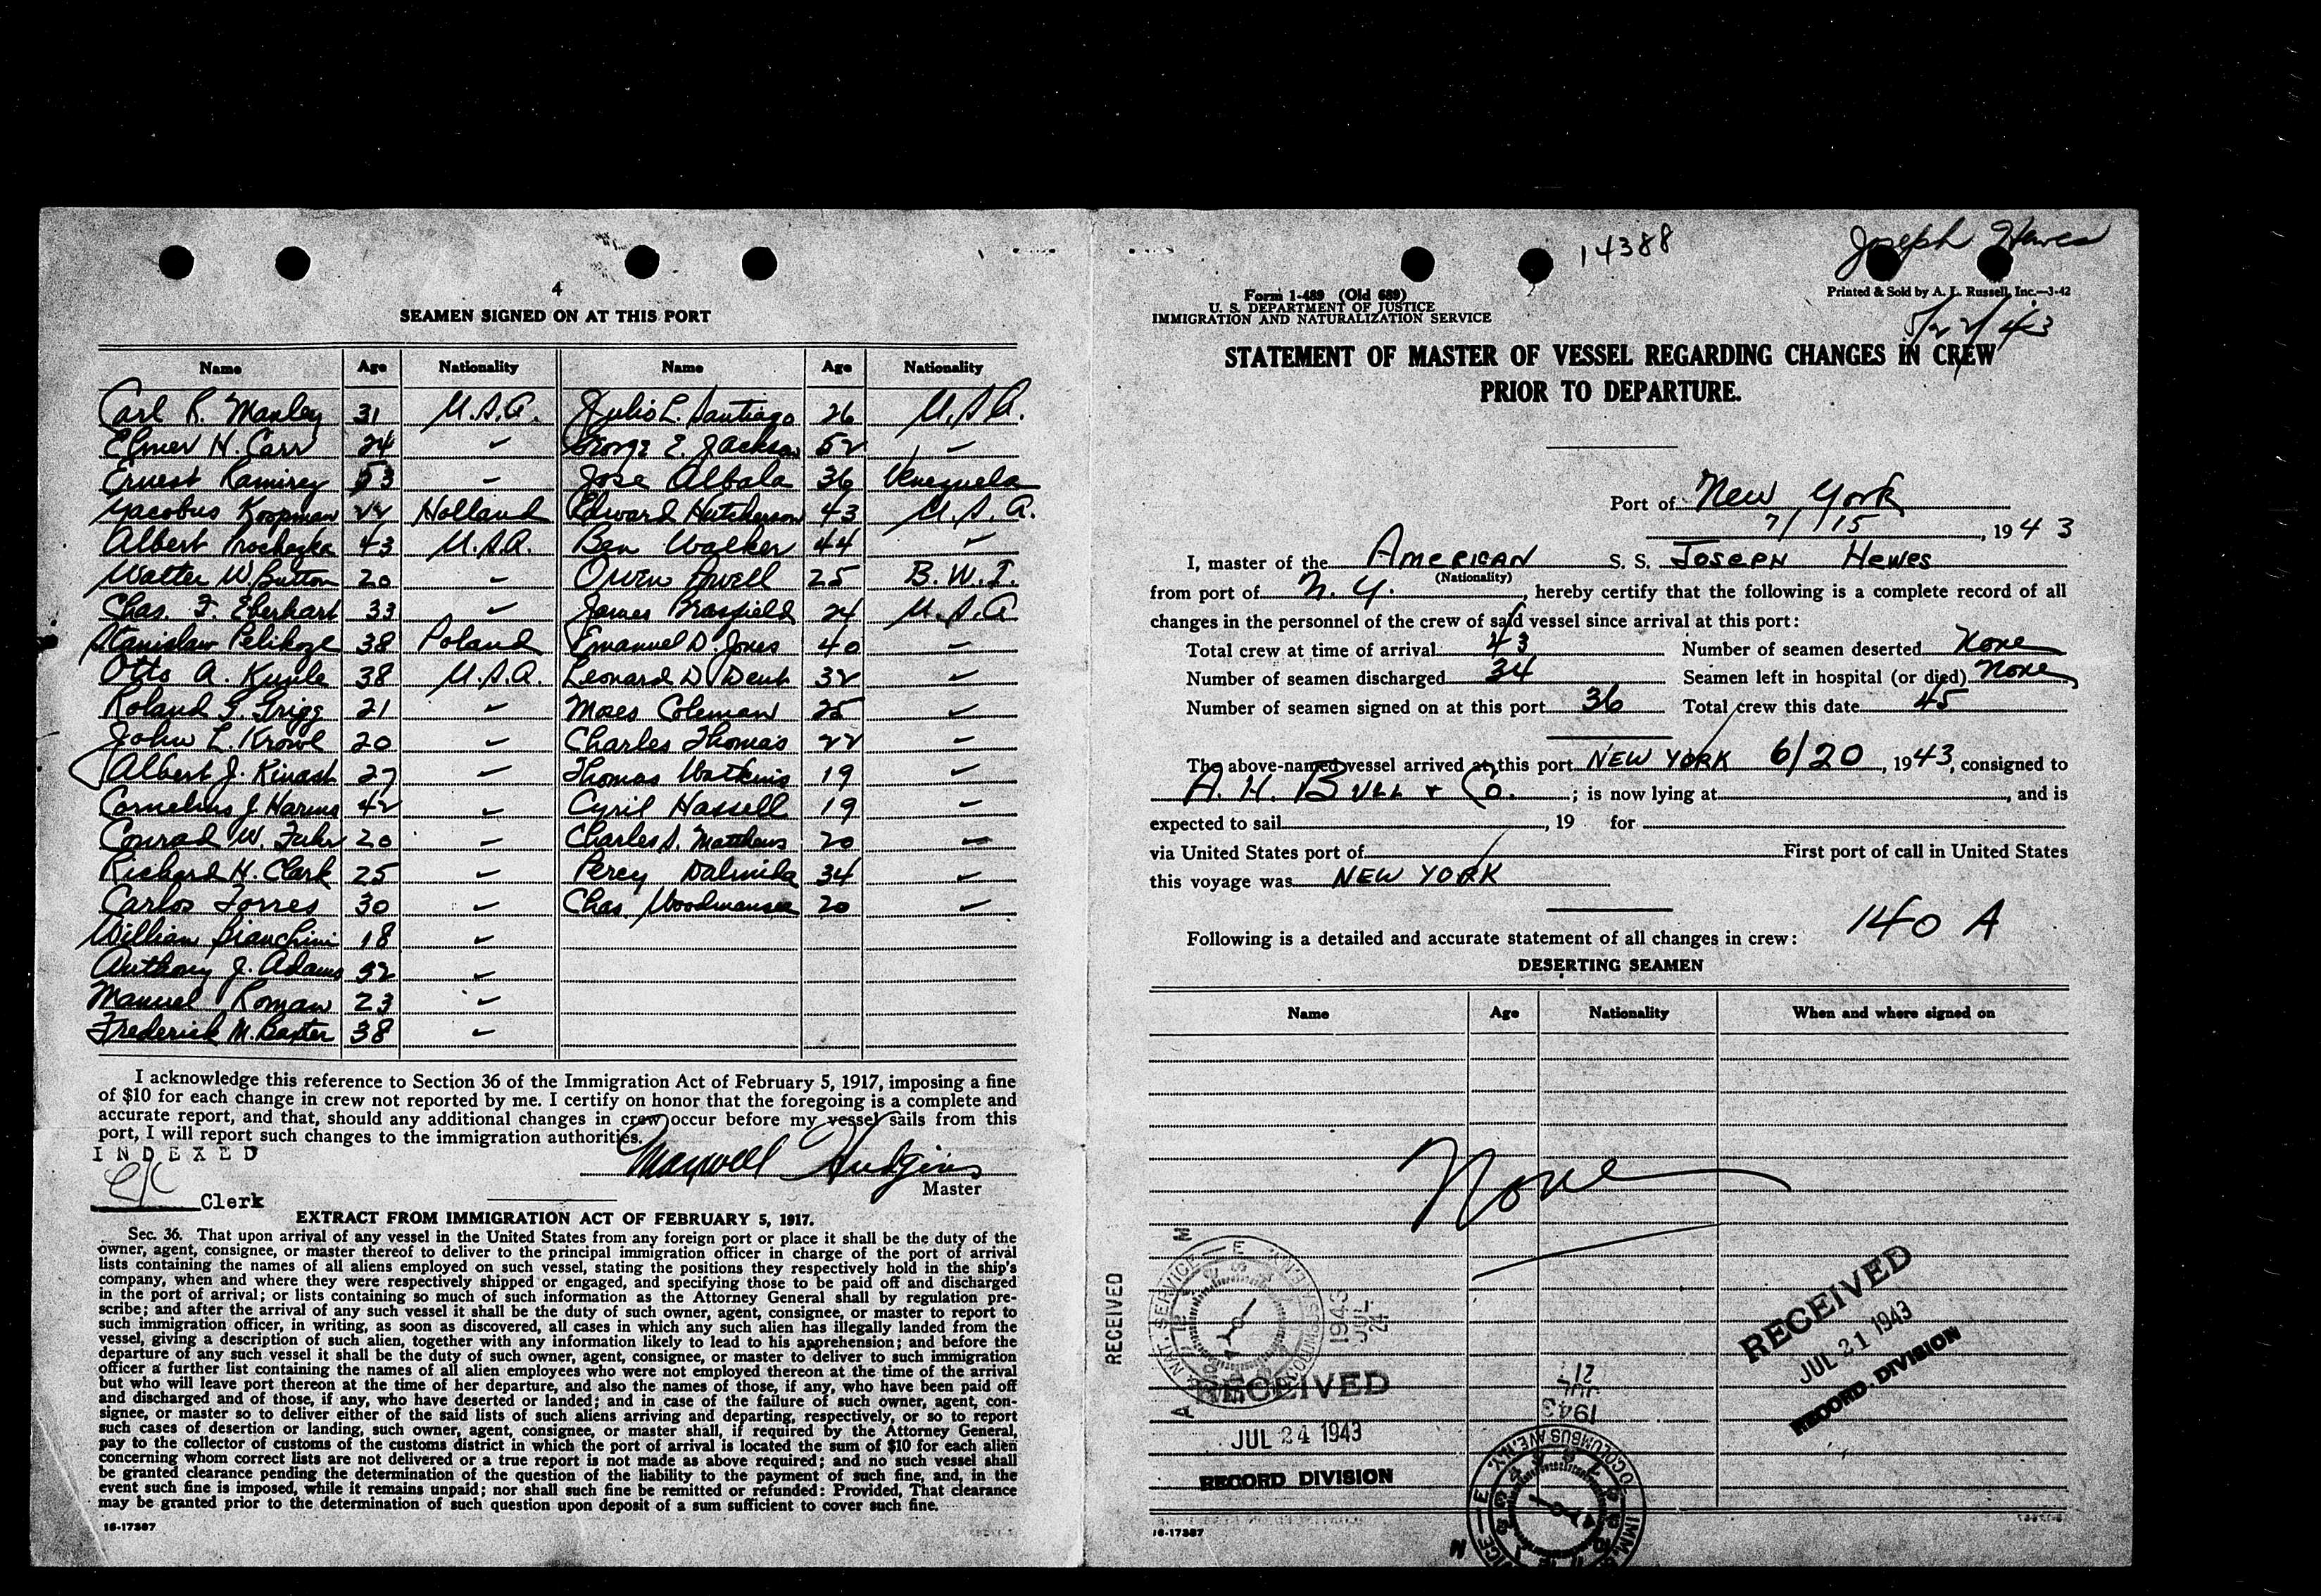 4
SEAMEN SIGNED ON AT THIS PORT
Name Age Nationality Name Age Nationality
Carl R. Manley 31 U.S.A. Julio L. Santiago 26 U.S.A.
Elmer H. Carr 24 ✓ George E. Jackson 52 ✓
Ernest Ramirez 53 ✓ Jose Albala 36 Venezuela
Yacobus Koopman 22 Holland Edward Hutcherson 43 U.S.A.
Albert Prochazka 43 U.S.A. Ben Walker 44 ✓
Walter W. Button 20 ✓ Owen 25 B.W.I.
Chas. F. Eberhart 33 ✓ James Brasfield 24 U.S.A
Stanislaw 38 Poland Emanuel D. Jones 40 ✓
Otto A. Kunle 38 U.S.A. Leonard D. Dent 32 ✓
Roland S. Trigg 21 ✓ Moses Coleman 25 ✓
John L. Krowl 20 ✓ Charles Thomas 22 ✓
Albert J. Kinast 27 ✓ Thomas Watkins 19 ✓
Cornelius J. Harms 42 ✓ Cyril Hassell 19 ✓
Conrad W. Fuhr 20 ✓ Charles S. Matthews 20 ✓
Richard H. Clark 25 ✓ Percy 34 ✓
Carlos Torres 30 ✓ Chas. Woodmansee 20 ✓
William Bianchini 18 ✓
Anthony J. Adams 32 ✓
Manuel Roman 23 ✓
Frederick M. Baxter 38 ✓
I acknowledge this reference to Section 36 of the Immigration Act of February 5, 1917, imposing a fine
of $10 for each change in crew not reported by me. I certify on honor that the foregoing is a complete and
accurate report, and that, should any additional changes in crew occur before my vessel sails from this
port, I will report such changes to the immigration authorities.
INDEXED
Maxwell Hudgins
Master
Clerk
EXTRACT FROM IMMIGRATION ACT OF FEBRUARY 5, 1917.
Sec. 36. That upon arrival of any vessel in the United States from any foreign port or place it shall be the duty of the
owner, agent, consignee, or master thereof to deliver to the principal immigration officer in charge of the port of arrival
lists containing the names of all aliens employed on such vessel, stating the positions they respectively hold in the ship's
company, when and where they were respectively shipped or engaged, and specifying those to be paid off and discharged
in the port of arrival; or lists containing so much of such information as the Attorney General shall by regulation pre-
scribe; and after the arrival of any such vessel it shall be the duty of such owner, agent, consignee, or master to report to
such immigration officer, in writing, as soon as discovered, all cases in which any such alien has illegally landed from the
vessel, giving a description of such alien, together with any information likely to lead to his apprehension; and before the
departure of any such vessel it shall be the duty of such owner, agent, consignee, or master to deliver to such immigration
officer a further list containing the names of all alien employees who were not employed thereon at the time of the arrival
but who will leave port thereon at the time of her departure, and also the names of those, if any, who have been paid off
and discharged and of those, if any, who have deserted or landed; and in case of the failure of such owner, agent, con-
signee, or master so to deliver either of the said lists of such aliens arriving and departing, respectively, or so to report
such cases of desertion or landing, such owner, agent, consignee, or master shall, if required by the Attorney General,
pay to the collector of customs of the customs district in which the port of arrival is located the sum of $10 for each alien
concerning whom correct lists are not delivered or a true report is not made as above required; and no such vessel shall
be granted clearance pending the determination of the question of the liability to the payment of such fine, and, in the
event such fine is imposed, while it remains unpaid; nor shall such fine be remitted or refunded: Provided, That clearance
may be granted prior to the determination of such question upon deposit of a sum sufficient to cover such fine.
16-17387
14388
Joseph Hewes
Form 1-489 (Old 689)
U. S. DEPARTMENT OF JUSTICE
IMMIGRATION AND NATURALIZATION SERVICE
Printed & Sold by A. L. Russell, Inc.—3-42
STATEMENT OF MASTER OF VESSEL REGARDING CHANGES IN CREW
PRIOR TO DEPARTURE.
Port of New York
7/15, 1943
I, master of the American S. S. Joseph Hewes
(Nationality)
from port of N.Y., hereby certify that the following is a complete record of all
changes in the personnel of the crew of said vessel since arrival at this port:
Total crew at time of arrival 43 Number of seamen deserted None
Number of seamen discharged 34 Seamen left in hospital (or died) None
Number of seamen signed on at this port 36 Total crew this date 45
The above-named vessel arrived at this port NEW YORK 6/20, 1943, consigned to
A. H. Bull & Co.; is now lying at, and is
expected to sail, 19 for
via United States port of First port of call in United States
this voyage was NEW YORK
140 A
Following is a detailed and accurate statement of all changes in crew:
DESERTING SEAMEN
Name Age Nationality When and where signed on
None
RECEIVED
1943 JUL 24
RECEIVED
JUL 24 1943
RECORD DIVISION
1943 JUL 21
COLUMBUS AVE. N.Y.
RECEIVED
JUL 21 1943
RECORD DIVISION
16-17387